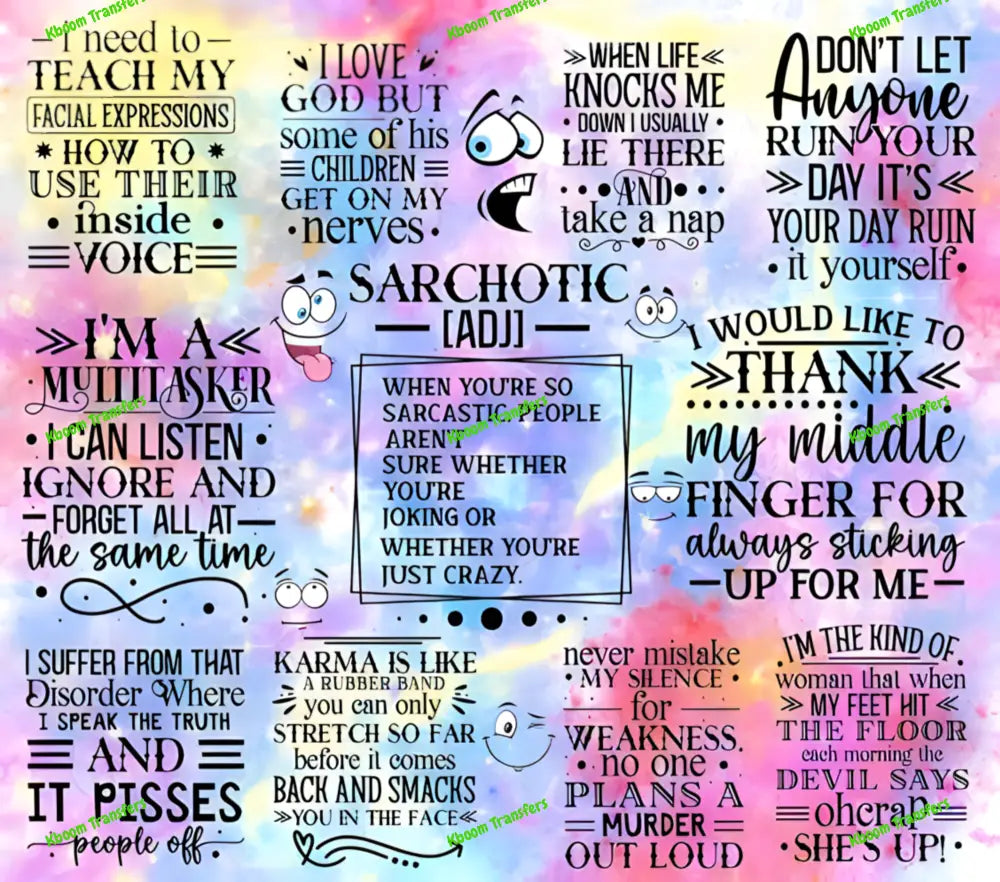 I need to
TEACH MY
FACIAL EXPRESSIONS
HOW TO
USE THEIR
inside
VOICE
I LOVE
GOD BUT
some of his
CHILDREN
GET ON MY
nerves
WHEN LIFE
KNOCKS ME
DOWN I USUALLY
LIE THERE
AND
take a nap
DON'T LET
Anyone
RUIN YOUR
DAY IT'S
YOUR DAY RUIN
it yourself
SARCHOTIC
[ADJ]
WHEN YOU'RE SO
SARCASTIC, PEOPLE
AREN'T
SURE WHETHER
YOU'RE
JOKING OR
WHETHER YOU'RE
JUST CRAZY.
I'M A
MULTITASKER
I CAN LISTEN
IGNORE AND
FORGET ALL AT
the same time
I WOULD LIKE TO
THANK
my middle
FINGER FOR
always sticking
UP FOR ME
I SUFFER FROM THAT
Disorder Where
I SPEAK THE TRUTH
AND
IT PISSES
people off
KARMA IS LIKE
A RUBBER BAND
you can only
STRETCH SO FAR
before it comes
BACK AND SMACKS
YOU IN THE FACE
never mistake
MY SILENCE
for
WEAKNESS.
no one
PLANS A
MURDER
OUT LOUD
I'M THE KIND OF
woman that when
MY FEET HIT
THE FLOOR
each morning the
DEVIL SAYS
ohcrap
SHE'S UP!
Kboom Transfers
Kboom Transfers
Kboom Transfers
Kboom Transfers
Kboom Transfers
Kboom Transfers
Kboom Transfers
Kboom Transfers
Kboom Transfers